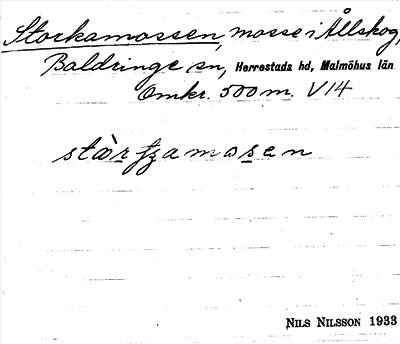 Storkamossen, mosse i Ållskog,
Baldringe sn, Herrestads hd, Malmöhus län
Omkr. 500 m. V 14
NILS NILSSON 1933